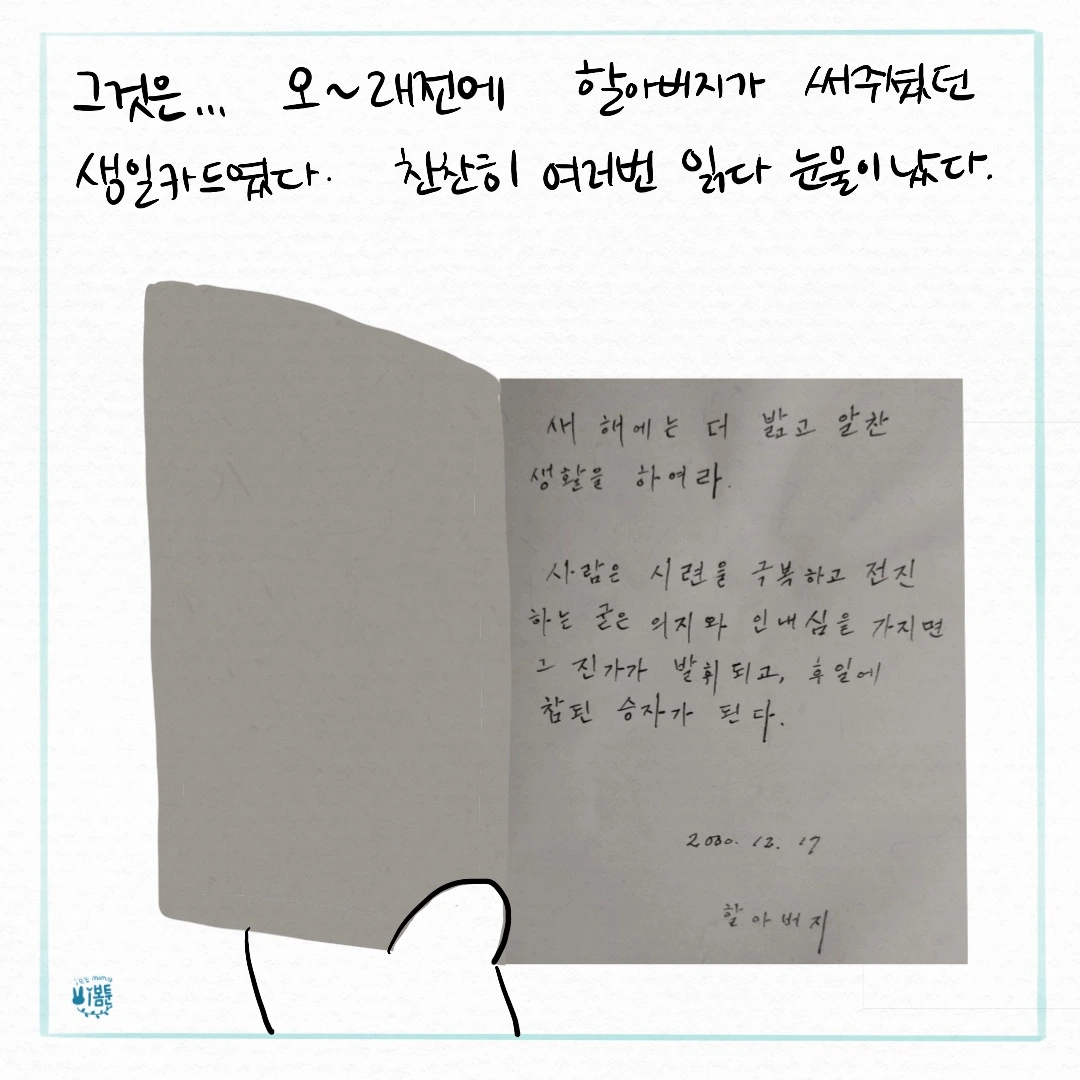 그것은... 오~래전에 할아버지가 써주셨던
생일카드였다. 찬찬히 여러번 읽다 눈물이 났다.
새 해에는 더 밝고 알찬
생활을 하여라.
사람은 시련을 극복하고 전진
하는 굳은 의지와 인내심을 가지면
그 진가가 발휘되고, 후일에
참된 승자가 된다.
2000. 12. 17
할아버지
봄툰